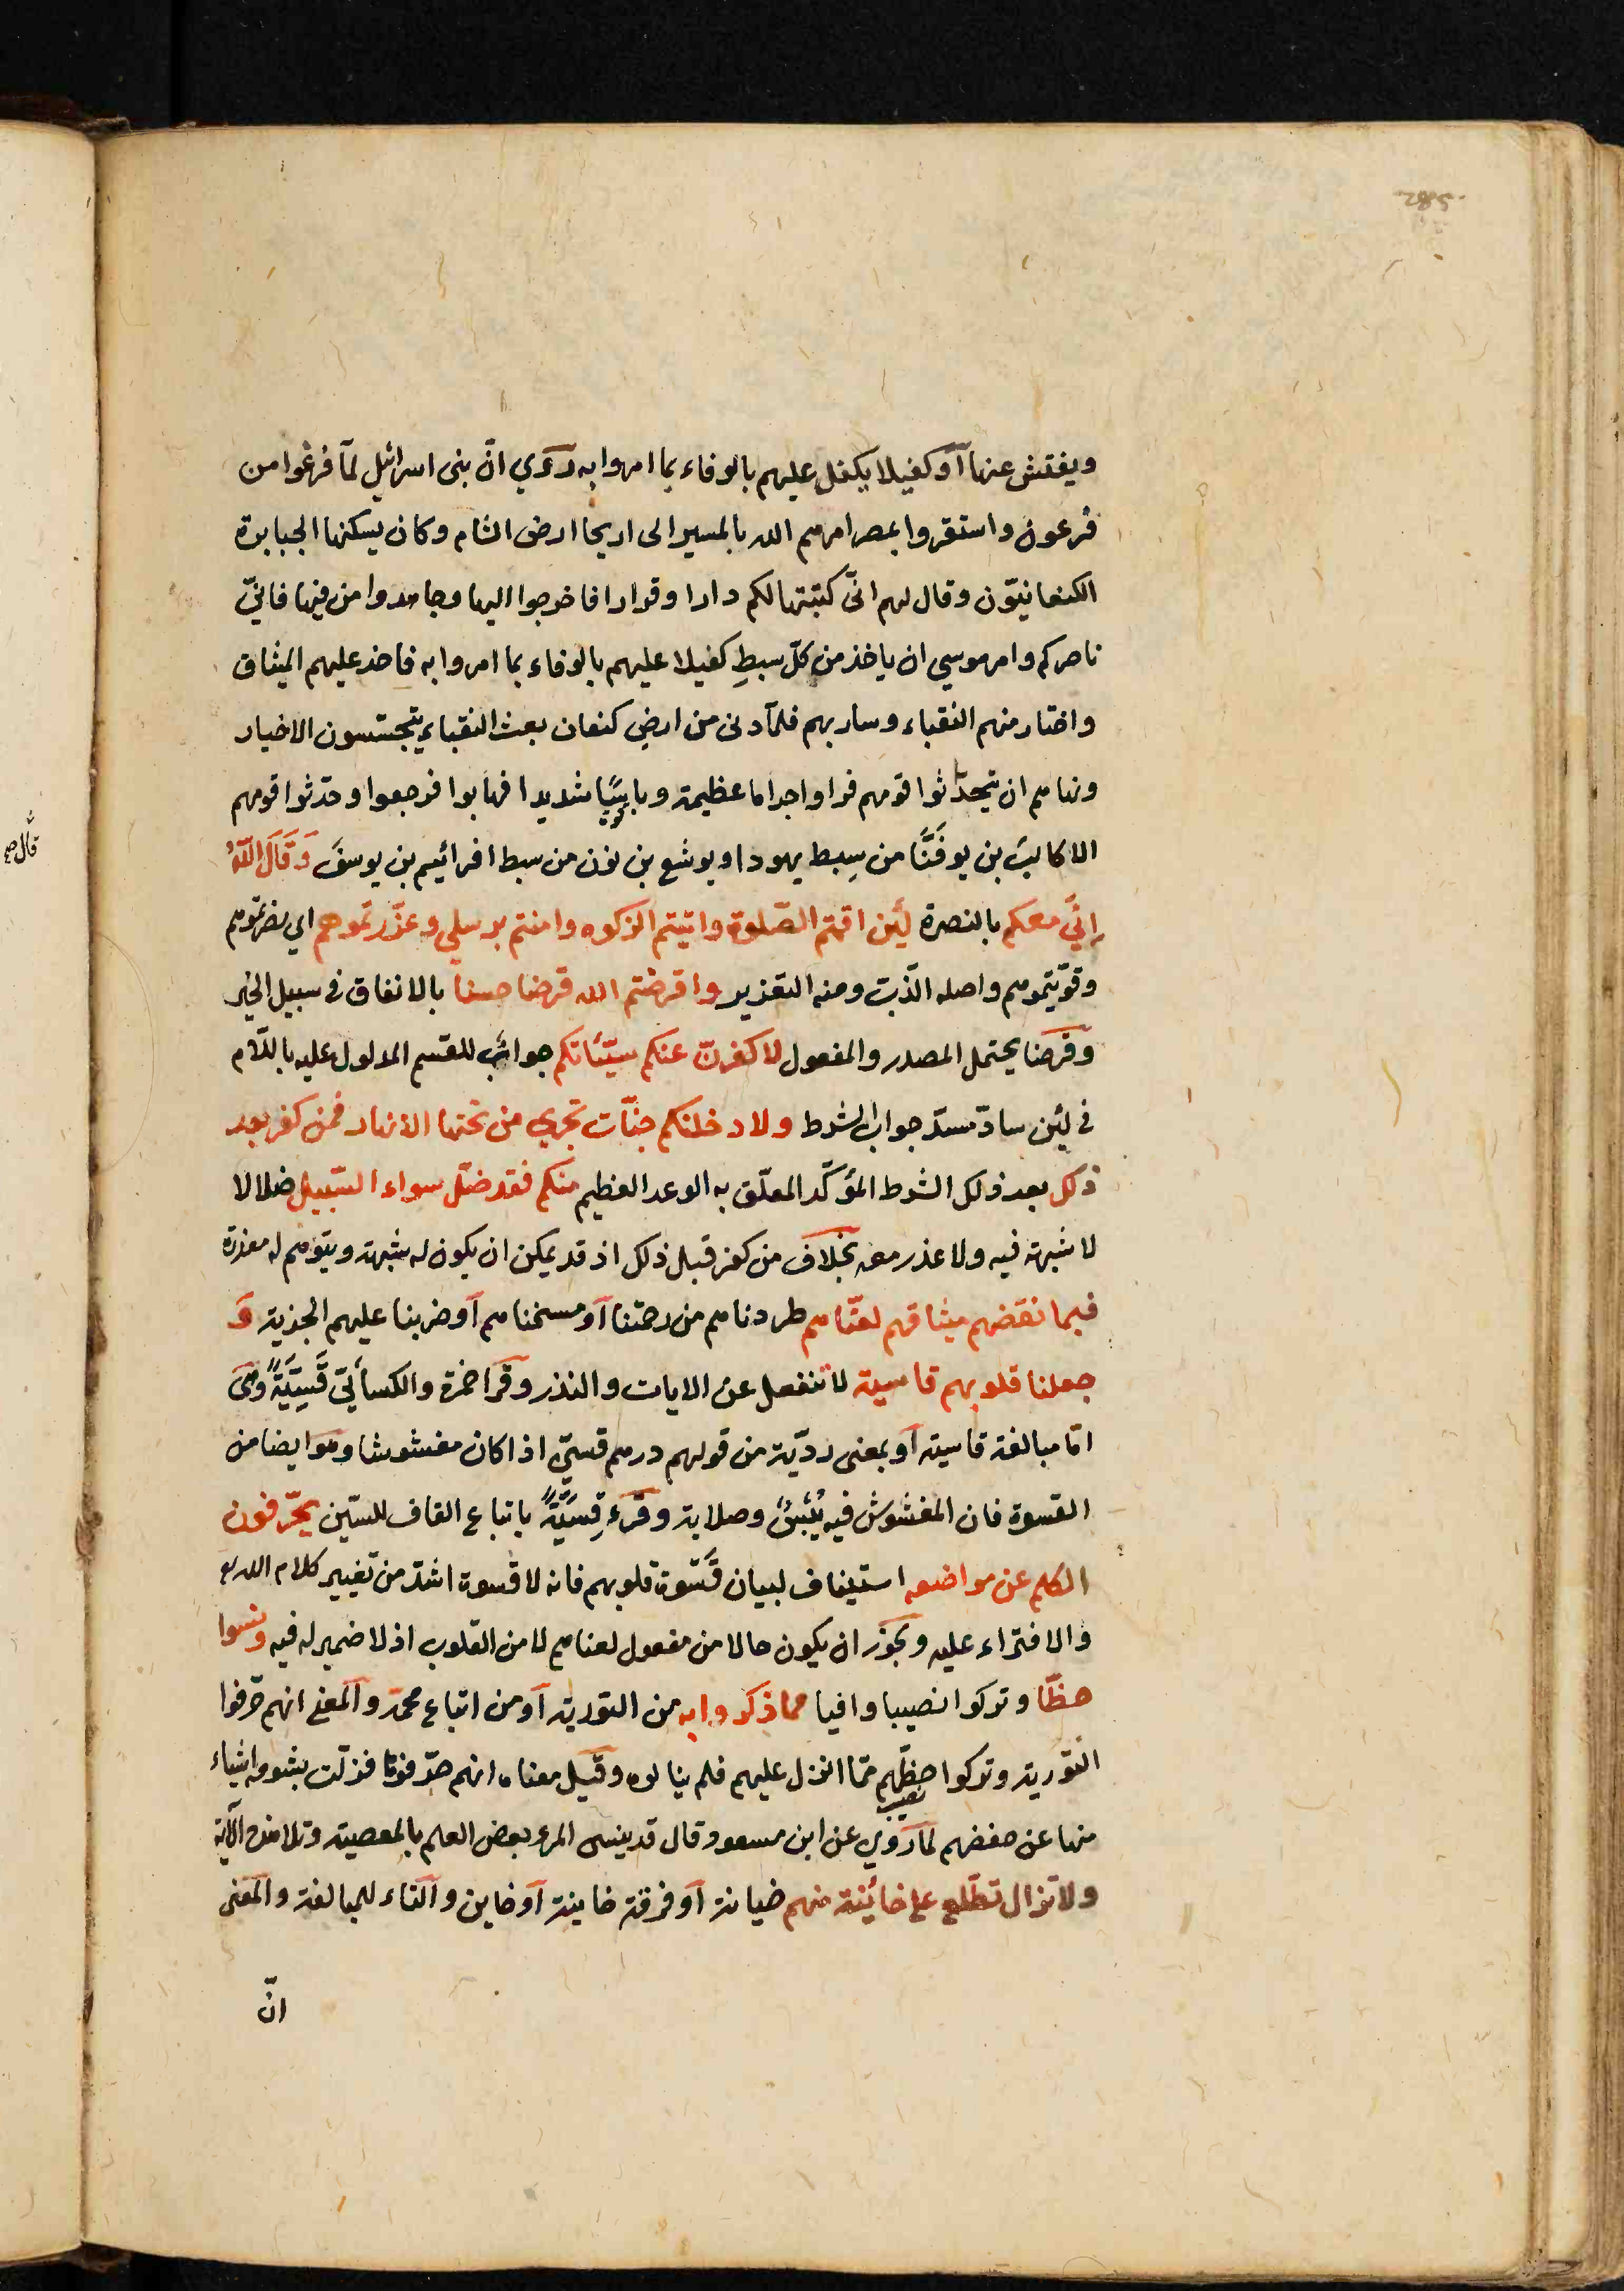 ويفتش عنها أو كفيلا يكفل عليهم بالوفاء بما امروا به روي انّ بنى اسرائيل لمّا فرغوا من
فرعون واستقروا بمصر امرهم الله بالمسير الى اريحا ارض الشام وكان يسكنها الجبابرة
الكنعانيّون وقال لهم انّى كتبتها لكم دارا وقرارا فاخرجوا اليها وجاهدوا من فيها فانّي
ناصركم وامر موسي ان ياخذ من كلّ سبطٍ كفيلا عليهم بالوفاء بما امروا به فاخذ عليهم الميثاق
واختار منهم النقباء وسار بهم فلمّا دنى من ارض كنعان بعث النقباء يتجسّسون الاخبار
ونهاهم ان يحدّثوا قومهم فراوا اجراما عظيمة وبأسًا شديدا فهابوا فرجعوا وحدثوا قومهم
الا كالب بن يوفَنَّا من سِبط يهودا ويوشع بن نون من سبط افرائيم بن يوسفَ وَقَالَ اللّهُ
إنّي معكم بالنصرة لَئِن اقمتم الصّلوة واتيتم الزكوه وامنتم برسلي وعزّرتموهم اي نصرتموهم
وقوّيتموهم واصله الذّبّ ومنه التعزير واقرضتم الله قرضا حسنا بالانفاق في سبيل الخير
وقرضا يحتمل المصدر والمفعول لاكفرنّ عنكم سيّئاتكم جواب للقسم المدلول عليه باللّام
في لئن سادّ مسدّ جواب الشرط ولادخلنكم جنّات تجري من تحتها الانهار فمن كفر بعد
ذلك بعد ذلك الشرط المؤكّد المعلّق به الوعد العظيم منكم فقد ضلّ سواء السّبيل ضلالا
لا شبهة فيه ولا عذر معه بخلاف من كفر قبل ذلك اذ قد يمكن ان يكون له شبهة ويتوهم له معذرة
فبما نقضهم ميثاقهم لعنّاهم طردناهم من رحمتنا أو مسخناهم أو ضربنا عليهم الجزية وَ
جعلنا قلوبهم قاسية لا تنفعل عن الايات والنذر وقرا حمزة والكسائيّ قَسِيَّةً وهي
امّا مبالغة قاسية أو بمعنى رديّة من قولهم درهم قسيّ اذا كان مغشوشا وهو ايضا من
القسوة فان المغشوش فيه يُبْسٌ وصلابة وقرء قِسِيَّةً باتباع القاف للسّين يحرّفون
الكلم عن مواضعه استيناف لبيان قَسْوة قلوبهم فانه لا قسوة اشدّ من تغيير كلام الله تع
والافتراء عليه ويجوز ان يكون حالا من مفعول لعناهم لا من القلوب اذ لا ضمير له فيه ونسوا
حظّا وتركوا نصيبا وافيا مما ذكروا به من التورية أو من اتباع محمّد والمعنى انهم حرّفوا
التّورية وتركوا حظّهم ممّا انزل عليهم فلم ينالوه وقيل معناه انهم حرّفوها فزلّت بشومه اشياء
منها عن حفضهم لما روي عن ابن مسعود قال قد ينسى المرء بعض العلم بالمعصية وتلا هذه الآية
ولا تزال تطّلع على خائنة منهم خيانة أو فرقة خاينة أو خاين والتاء للمبالغة والمعنى
انّ